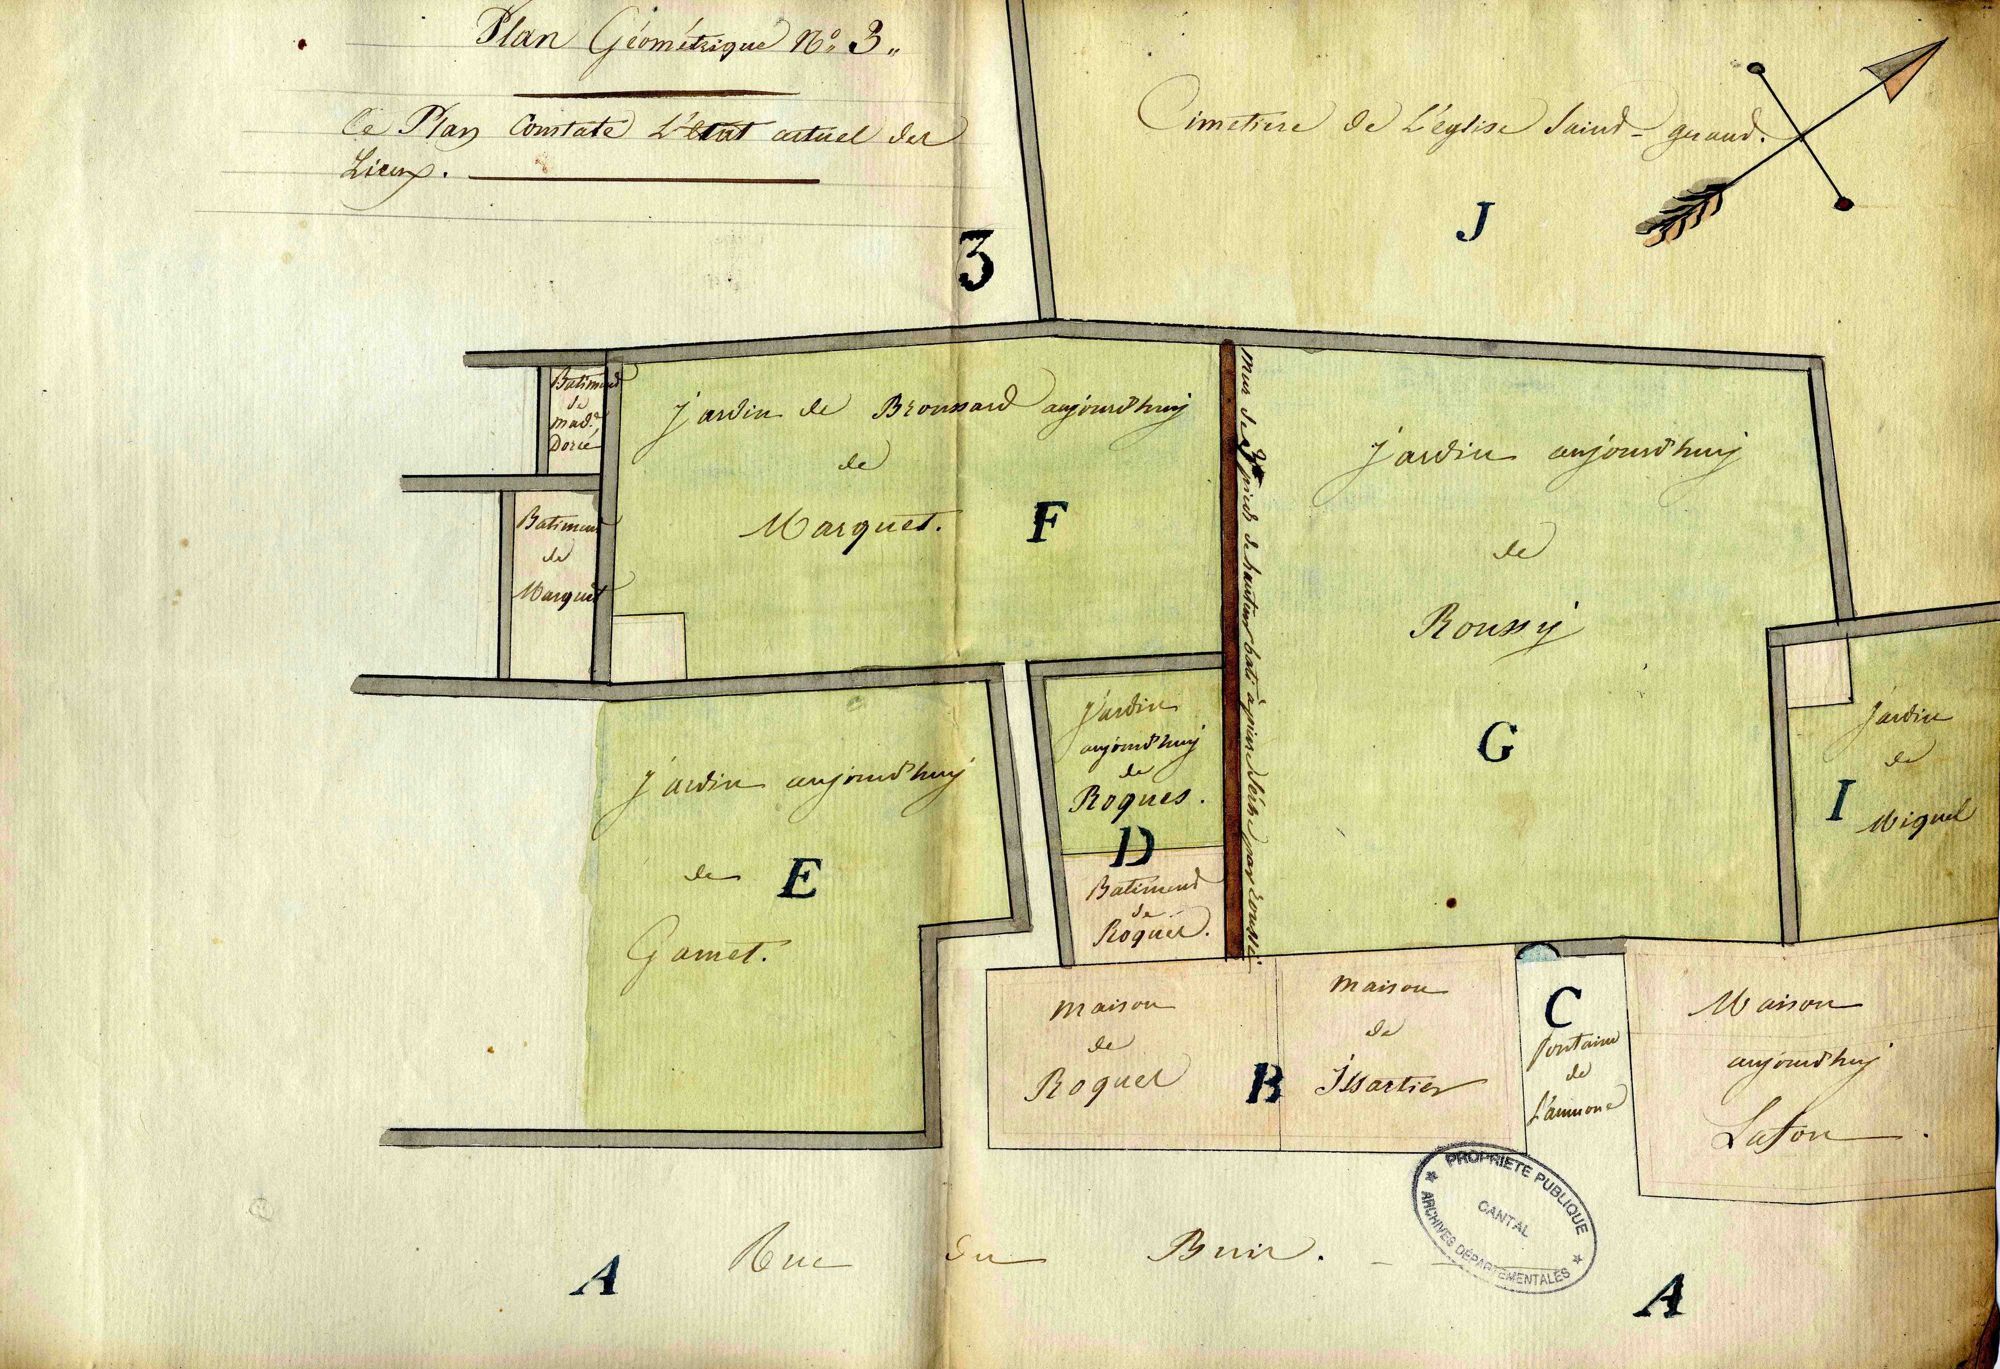 Plan Géométrique N° 3.,
Ce Plan Constate L'état actuel des
Lieux.
Cimetiere de L'église Saint-geraud.
J
3
Batiment
de
mad.e
Dorie
Jardin de Broussard aujourd'huy
de
Marquet.
F
Batiment
de
Marquet
mur de pieds de hauteur bati à par roussi
Jardin aujourd'huy
de
Roussy
G
Jardin
aujourd'huy
de
Roques.
D
Batiment
de
Roques.
Jardin
de
I
Miquel
Jardin aujourd'huy
de
E
Gamet.
maison
de
Roques
B
maison
de
Issartier
C
fontaine
de
L'aumone
Maison
aujourd'huy
Lafon.
PROPRIETE PUBLIQUE
CANTAL
ARCHIVES DÉPARTEMENTALES
A
Rue du Buis.
A